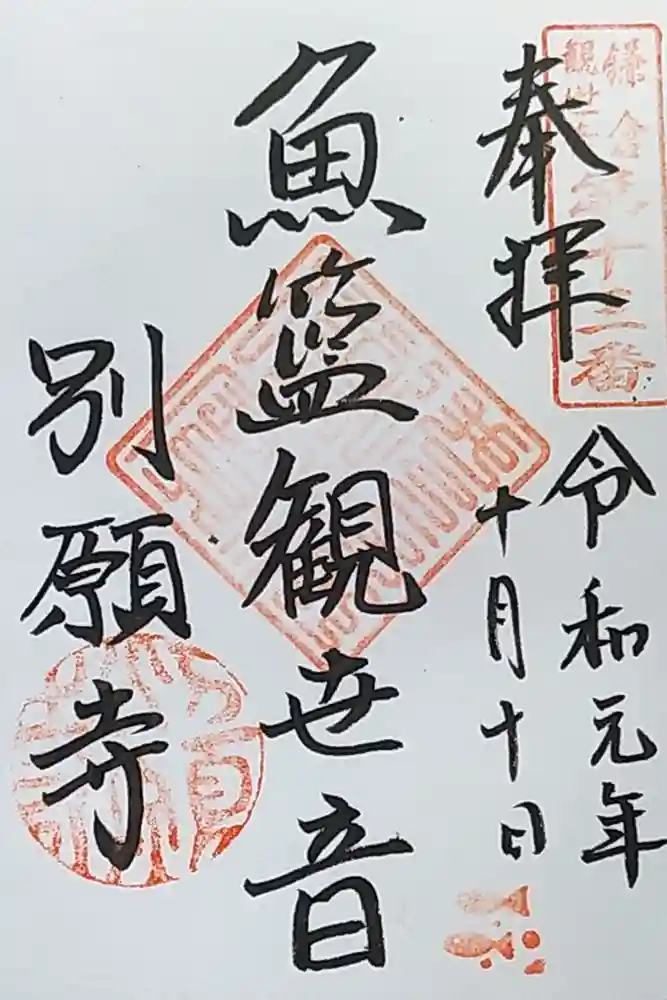 鎌倉第十三番
観世音
奉拝
令和元年
十月十日
魚籃観世音
別願寺